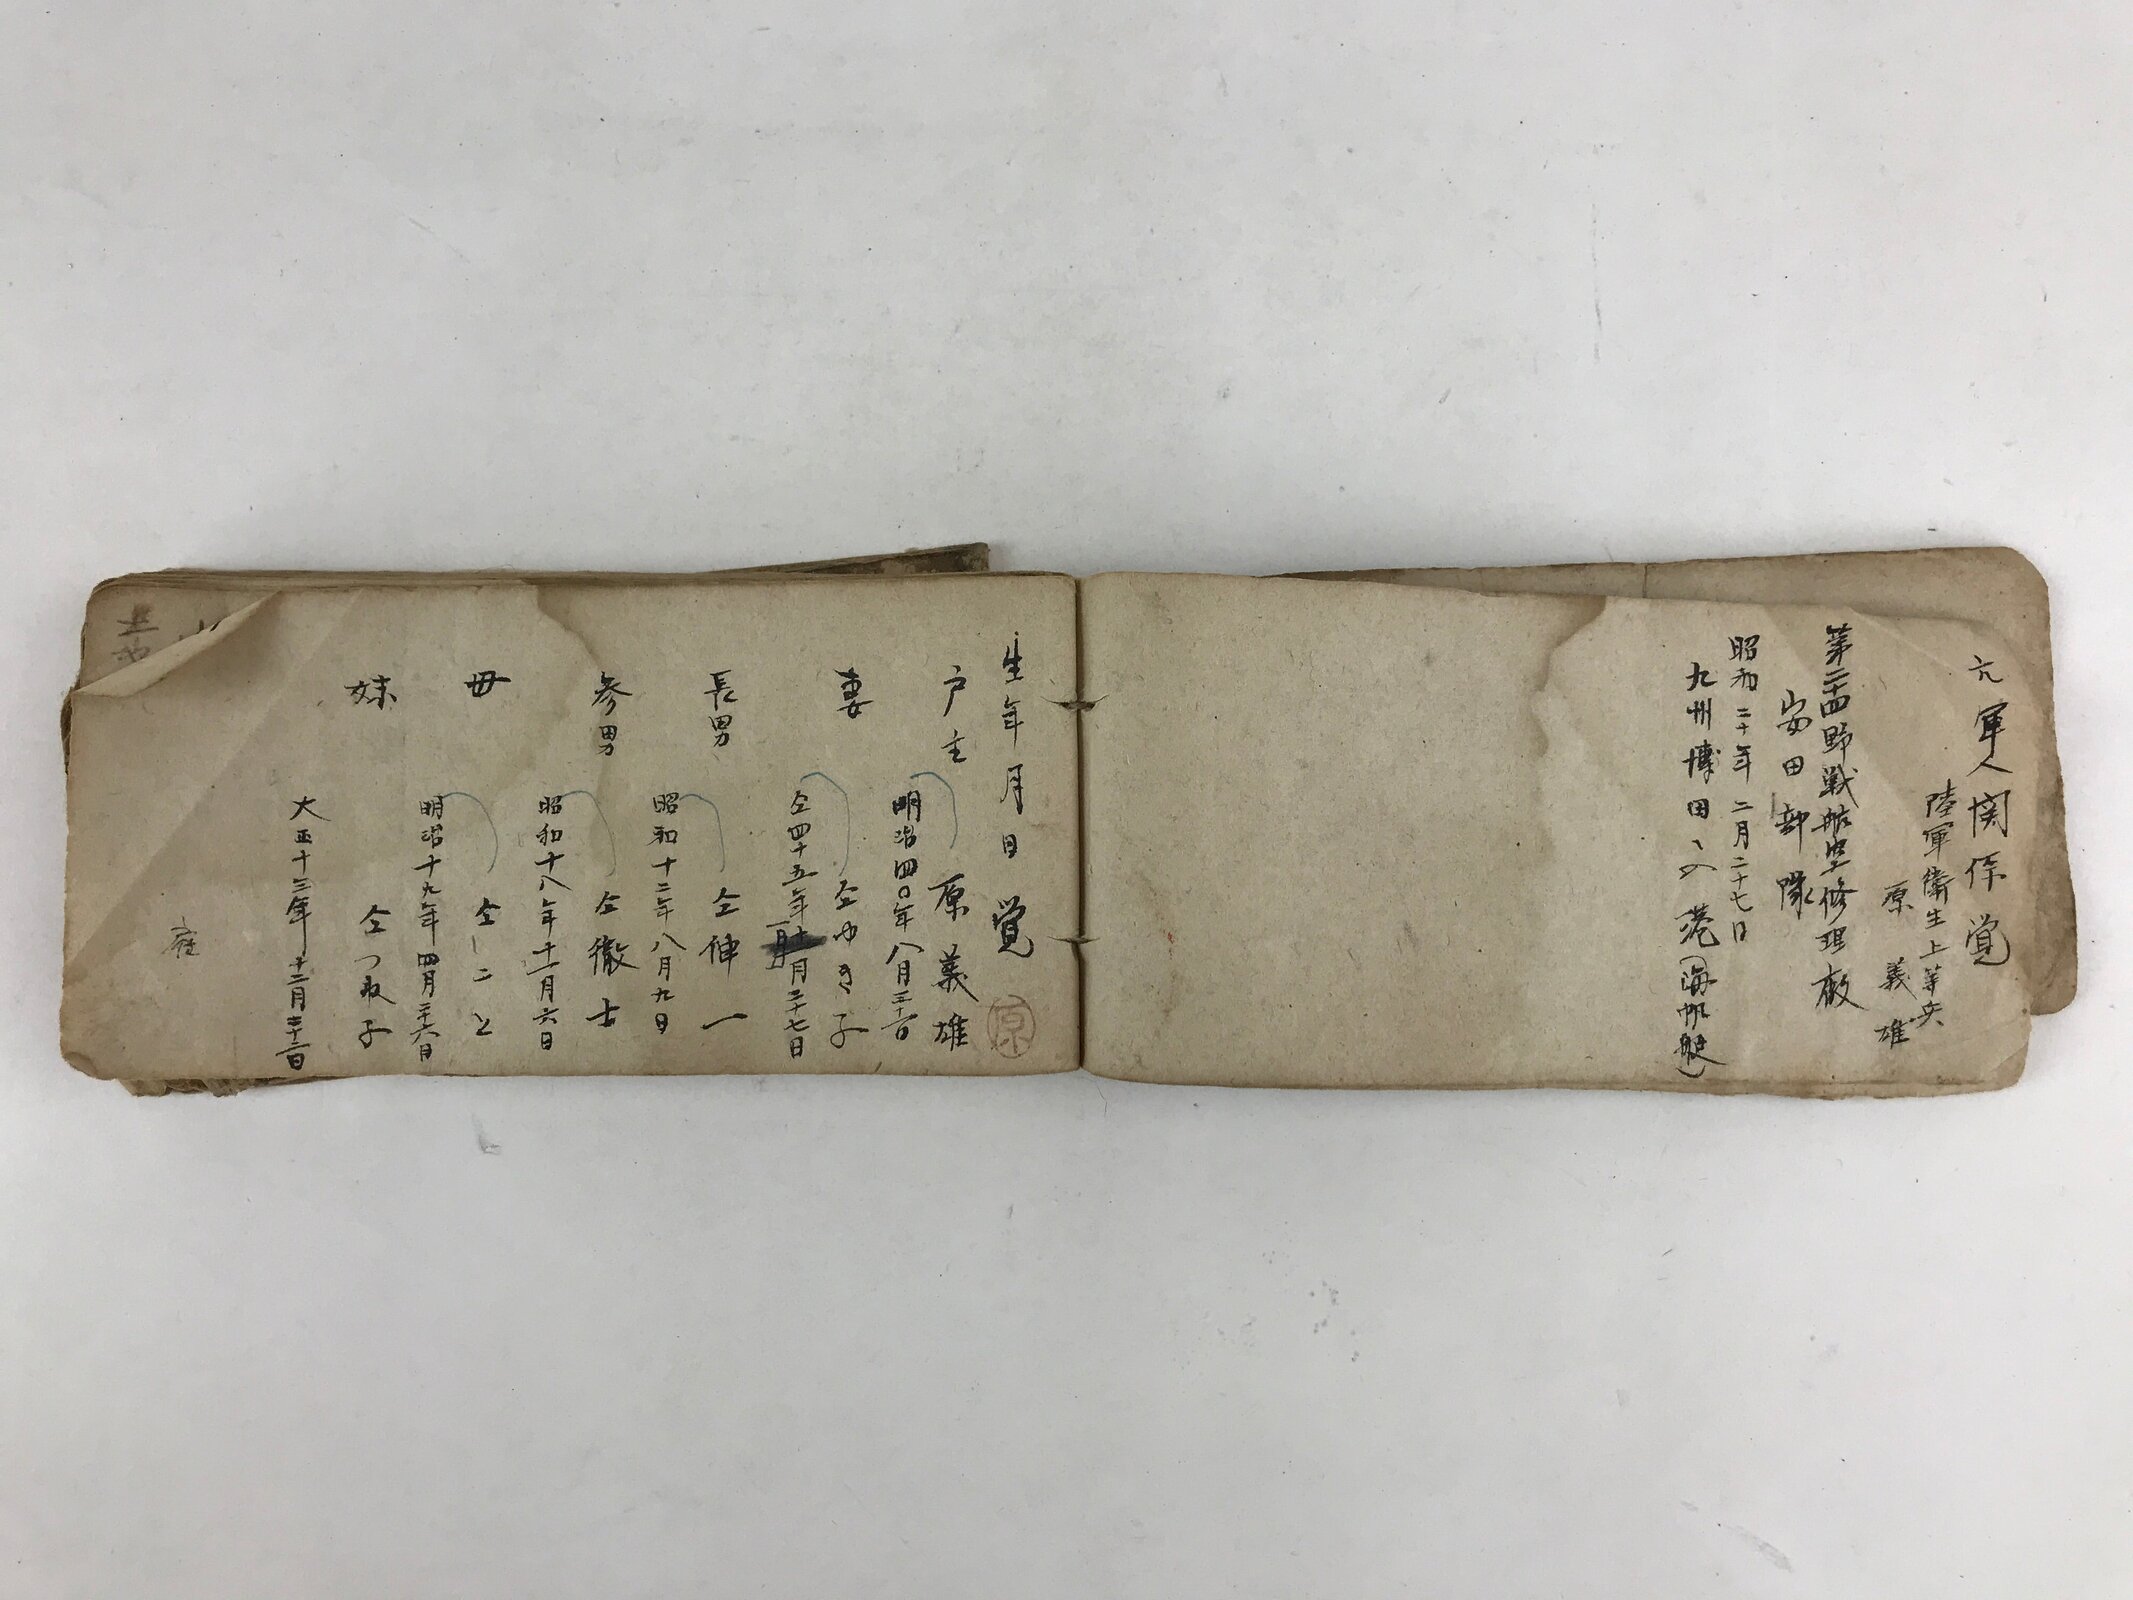 元軍人関係覚
陸軍衛生上等兵
原義雄
第二十四野戦航空修理廠
安田部隊
昭和二十年二月二十七日
九州博田ヘ入港(海帆艇)
生年月日覚
原
戸主 原義雄
明治四〇年八月三十一日
妻 仝ゆき子
仝四十五年一月二十七日
長男 仝伸一
昭和十二年八月九日
参男 仝徹士
昭和十八年十一月六日
母 仝こと
明治十九年四月二十六日
妹 仝つね子
大正十三年十二月二十二日